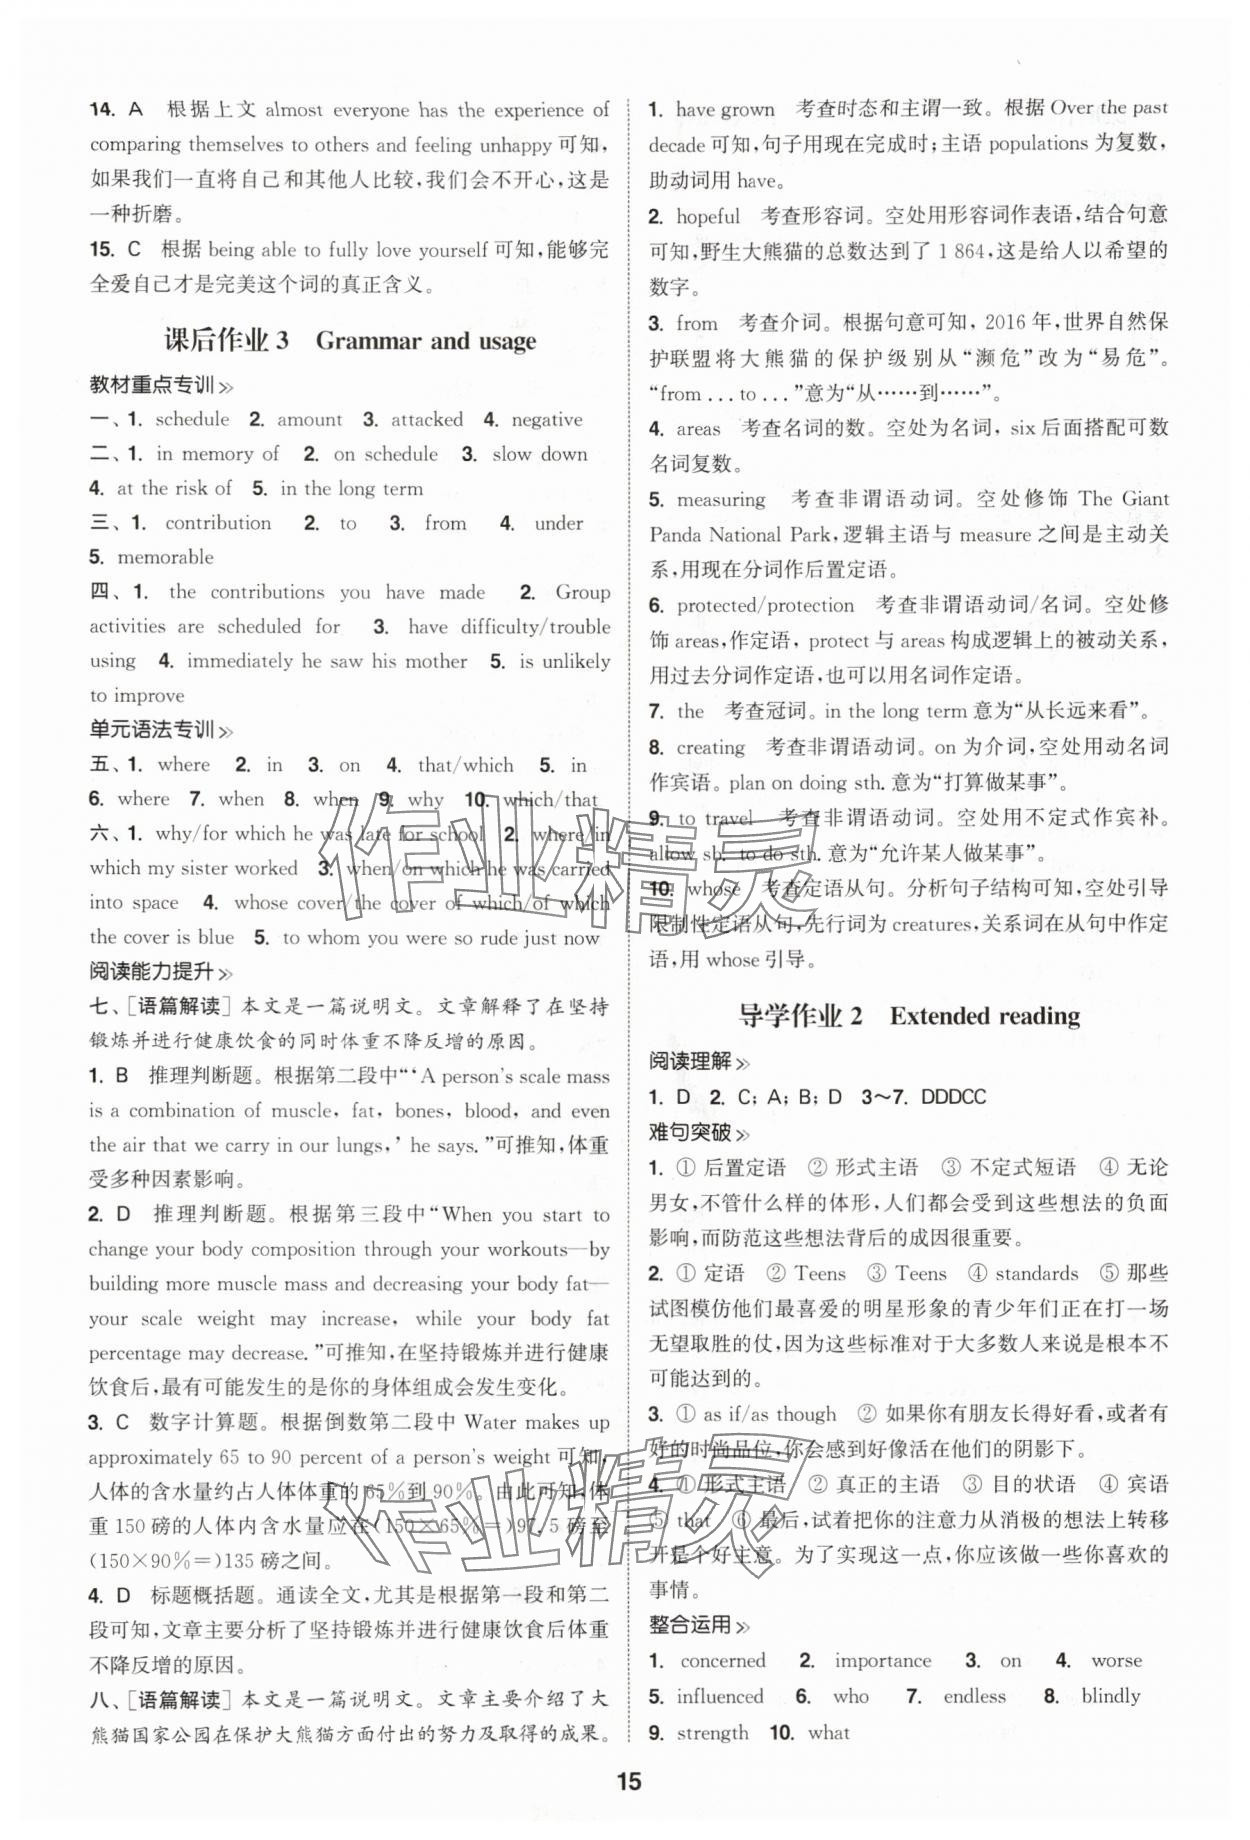 14. A 根据上文 almost everyone has the experience of
comparing themselves to others and feeling unhappy 可知,
如果我们一直将自己和其他人比较,我们会不开心,这是
一种折磨。
15. C 根据 being able to fully love yourself 可知,能够完
全爱自己才是完美这个词的真正含义。
课后作业 3 Grammar and usage
教材重点专训
一、1. schedule 2. amount 3. attacked 4. negative
二、1. in memory of 2. on schedule 3. slow down
4. at the risk of 5. in the long term
三、1. contribution 2. to 3. from 4. under
5. memorable
四、1. the contributions you have made 2. Group
activities are scheduled for 3. have difficulty/trouble
using 4. immediately he saw his mother 5. is unlikely
to improve
单元语法专训
五、1. where 2. in 3. on 4. that/which 5. in
6. where 7. when 8. when 9. why 10. which/that
六、1. why/for which he was late for school 2. where/in
which my sister worked 3. when/on which he was carried
into space 4. whose cover/the cover of which/of which
the cover is blue 5. to whom you were so rude just now
阅读能力提升
七、[语篇解读] 本文是一篇说明文。文章解释了在坚持
锻炼并进行健康饮食的同时体重不降反增的原因。
1. B 推理判断题。根据第二段中“‘A person's scale mass
is a combination of muscle, fat, bones, blood, and even
the air that we carry in our lungs,’ he says.”可推知,体重
受多种因素影响。
2. D 推理判断题。根据第三段中“When you start to
change your body composition through your workouts—by
building more muscle mass and decreasing your body fat—
your scale weight may increase, while your body fat
percentage may decrease.”可推知,在坚持锻炼并进行健康
饮食后,最有可能发生的是你的身体组成会发生变化。
3. C 数字计算题。根据倒数第二段中 Water makes up
approximately 65 to 90 percent of a person's weight 可知,
人体的含水量约占人体体重的 65%到 90%。由此可知,体
重 150 磅的人体内含水量应在(150×65%=)97.5 磅至
(150×90%=)135 磅之间。
4. D 标题概括题。通读全文,尤其是根据第一段和第二
段可知,文章主要分析了坚持锻炼并进行健康饮食后体重
不降反增的原因。
八、[语篇解读] 本文是一篇说明文。文章主要介绍了大
熊猫国家公园在保护大熊猫方面付出的努力及取得的成果。
1. have grown 考查时态和主谓一致。根据 Over the past
decade 可知,句子用现在完成时;主语 populations 为复数,
助动词用 have。
2. hopeful 考查形容词。空处用形容词作表语,结合句意
可知,野生大熊猫的总数达到了 1 864,这是给人以希望的
数字。
3. from 考查介词。根据句意可知, 2016 年,世界自然保
护联盟将大熊猫的保护级别从“濒危”改为“易危”。
“from ... to ...”意为“从……到……”。
4. areas 考查名词的数。空处为名词, six 后面搭配可数
名词复数。
5. measuring 考查非谓语动词。空处修饰 The Giant
Panda National Park,逻辑主语与 measure 之间是主动关
系,用现在分词作后置定语。
6. protected/protection 考查非谓语动词/名词。空处修
饰 areas,作定语, protect 与 areas 构成逻辑上的被动关系,
用过去分词作定语,也可以用名词作定语。
7. the 考查冠词。in the long term 意为“从长远来看”。
8. creating 考查非谓语动词。on 为介词,空处用动名词
作宾语。plan on doing sth. 意为“打算做某事”。
9. to travel 考查非谓语动词。空处用不定式作宾补。
allow sb. to do sth. 意为“允许某人做某事”。
10. whose 考查定语从句。分析句子结构可知,空处引导
限制性定语从句,先行词为 creatures,关系词在从句中作定
语,用 whose 引导。
导学作业 2 Extended reading
阅读理解
1. D 2. C; A; B; D 3～7. DDDCC
难句突破
1. ① 后置定语 ② 形式主语 ③ 不定式短语 ④ 无论
男女,不管什么样的体形,人们都会受到这些想法的负面
影响,而防范这些想法背后的成因很重要。
2. ① 定语 ② Teens ③ Teens ④ standards ⑤ 那些
试图模仿他们最喜爱的明星形象的青少年们正在打一场
无望取胜的仗,因为这些标准对于大多数人来说是根本不
可能达到的。
3. ① as if/as though ② 如果你有朋友长得好看,或者有
好的时尚品位,你会感到好像活在他们的阴影下。
4. ① 形式主语 ② 真正的主语 ③ 目的状语 ④ 宾语
⑤ that ⑥ 最后,试着把你的注意力从消极的想法上转移
开是个好主意。为了实现这一点,你应该做一些你喜欢的
事情。
整合运用
1. concerned 2. importance 3. on 4. worse
5. influenced 6. who 7. endless 8. blindly
9. strength 10. what
15
作业精灵
作业精灵